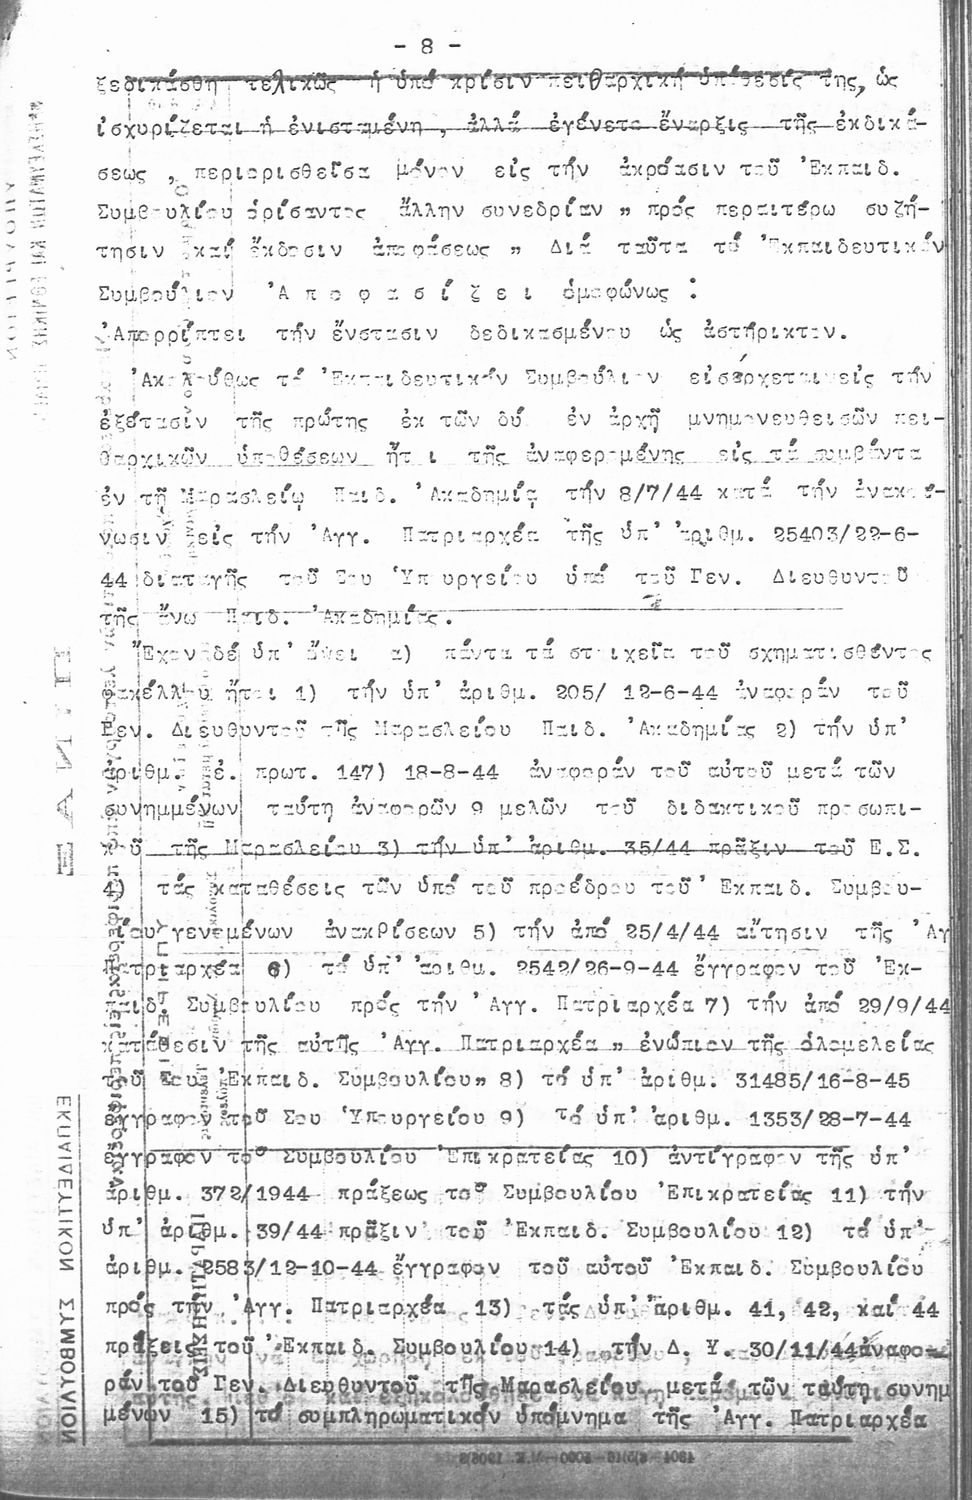 - 8 -
ξεδικάσθη τελικῶς ἡ ὑπό κρίσιν πειθαρχική ὑπόθεσίς της, ὡς
ἰσχυρίζεται ἡ ἐνισταμένη , ἀλλά ἐγένετο ἔναρξις τῆς ἐκδικά-
σεως , περιορισθεῖσα μόνον εἰς τήν ἀκρόασιν τοῦ Ἐκπαιδ.
Συμβουλίου ὁρίσαντος ἄλλην συνεδρίαν " πρός περαιτέρω συζή-
τησιν καί ἔκδοσιν ἀποφάσεως " Διά ταῦτα τό Ἐκπαιδευτικόν
Συμβούλιον Ἀ π ο φ α σ ί ζ ε ι ὁμοφώνως :
Ἀπορρίπτει τήν ἔνστασιν δεδικασμένου ὡς ἀστήρικτον.
Ἀκολούθως τό Ἐκπαιδευτικόν Συμβούλιον εἰσέρχεται εἰς τήν
ἐξέτασιν τῆς πρώτης ἐκ τῶν δύο ἐν ἀρχῇ μνημονευθεισῶν πει-
θαρχικῶν ὑποθέσεων ἤτοι τῆς ἀναφερομένης εἰς τά συμβάντα
ἐν τῇ Μαρασλείῳ Παιδ. Ἀκαδημίᾳ τήν 8/7/44 κατά τήν ἀνακοί-
νωσιν εἰς τήν Ἀγγ. Πατριαρχέα τῆς ὑπ' ἀριθμ. 25403/22-6-
44 διαταγῆς τοῦ Σου Ὑπουργείου ὑπό τοῦ Γεν. Διευθυντοῦ
τῆς ἄνω Παιδ. Ἀκαδημίας.
Ἔχον δέ ὑπ' ὄψει α) πάντα τά στοιχεῖα τοῦ σχηματισθέντος
φακέλλου ἤτοι 1) τήν ὑπ' ἀριθμ. 205/ 12-6-44 ἀναφοράν τοῦ
Γεν. Διευθυντοῦ τῆς Μαρασλείου Παιδ. Ἀκαδημίας 2) τήν ὑπ'
ἀριθμ. ἐ. πρωτ. 147) 18-8-44 ἀναφοράν τοῦ αὐτοῦ μετά τῶν
συνημμένων ταύτῃ ἀναφορῶν 9 μελῶν τοῦ διδακτικοῦ προσωπι-
κοῦ τῆς Μαρασλείου 3) τήν ὑπ' ἀριθμ. 35/44 πρᾶξιν τοῦ Ε.Σ.
4) τάς καταθέσεις τῶν ὑπό τοῦ προέδρου τοῦ Ἐκπαιδ. Συμβου-
λίου γενομένων ἀνακρίσεων 5) τήν ἀπό 25/4/44 αἴτησιν τῆς Ἀγ
Πατριαρχέα 6) τό ὑπ' ἀριθμ. 2542/26-9-44 ἔγγραφον τοῦ Ἐκ-
παιδ. Συμβουλίου πρός τήν Ἀγγ. Πατριαρχέα 7) τήν ἀπό 29/9/44
κατάθεσιν τῆς αὐτῆς Ἀγγ. Πατριαρχέα " ἐνώπιον τῆς ὁλομελείας
τοῦ Σου Ἐκπαιδ. Συμβουλίου" 8) τό ὑπ' ἀριθμ. 31485/16-8-45
ἔγγραφον τοῦ Σου Ὑπουργείου 9) Τό ὑπ' ἀριθμ. 1353/28-7-44
ἔγγραφον τοῦ Συμβουλίου Ἐπικρατείας 10) ἀντίγραφον τῆς ὑπ'
ἀριθμ. 372/1944 πράξεως τοῦ Συμβουλίου Ἐπικρατείας 11) τήν
ὑπ' ἀριθμ. 39/44 πρᾶξιν τοῦ Ἐκπαιδ. Συμβουλίου 12) τό ὑπ'
ἀριθμ. 2583/12-10-44 ἔγγραφον τοῦ αὐτοῦ Ἐκπαιδ. Συμβουλίου
πρός τήν Ἀγγ. Πατριαρχέα 13) τάς ὑπ' ἀριθμ. 41, 42, καί 44
πράξεις τοῦ Ἐκπαιδ. Συμβουλίου 14) τήν Δ. Υ. 30/11/44 ἀναφο-
ράν τοῦ Γεν. Διευθυντοῦ τῆς Μαρασλείου μετά τῶν ταύτῃ συνημ
μένων 15) τό συμπληρωματικόν ὑπόμνημα τῆς Ἀγγ. Πατριαρχέα
ΕΚΠΑΙΔΕΥΤΙΚΟΝ ΣΥΜΒΟΥΛΙΟΝ